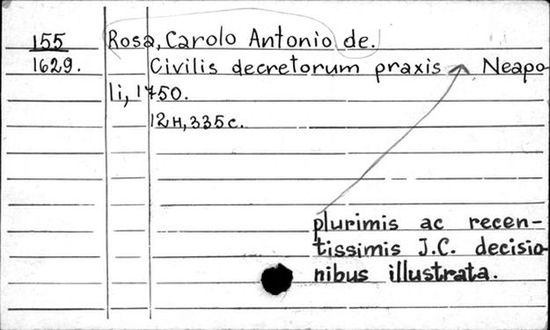 155 Rosa, Carolo Antonio de.
1629. Civilis decretorum praxis Neapo-
li, 1750.
12н, 335 с.
plurimis ac recen-
tissimis J.C. decisio-
nibus illustrata.